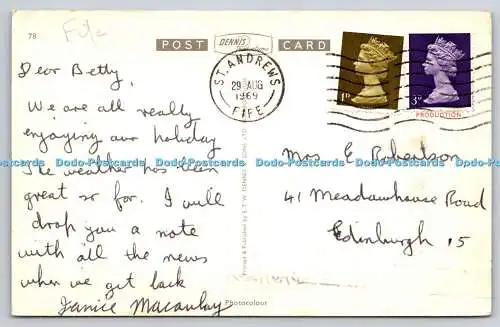 78
Fife
POST
DENNIS
CARD
ST. ANDREWS
29 AUG
1969
FIFE
1D
3D
PRODUCTION
Dear Betty,
We are all really
enjoying our holiday
The weather has been
great so far. I will
drop you a note
with all the news
when we get back
Janice Macaulay
Mrs E Robertson
41 Meadowhouse Road
Edinburgh 15
Photocolour
Dodo-Postcards Dodo-Postcards Dodo-Postcards Dodo-Postcards Dodo-Postcards Dodo-Postcards